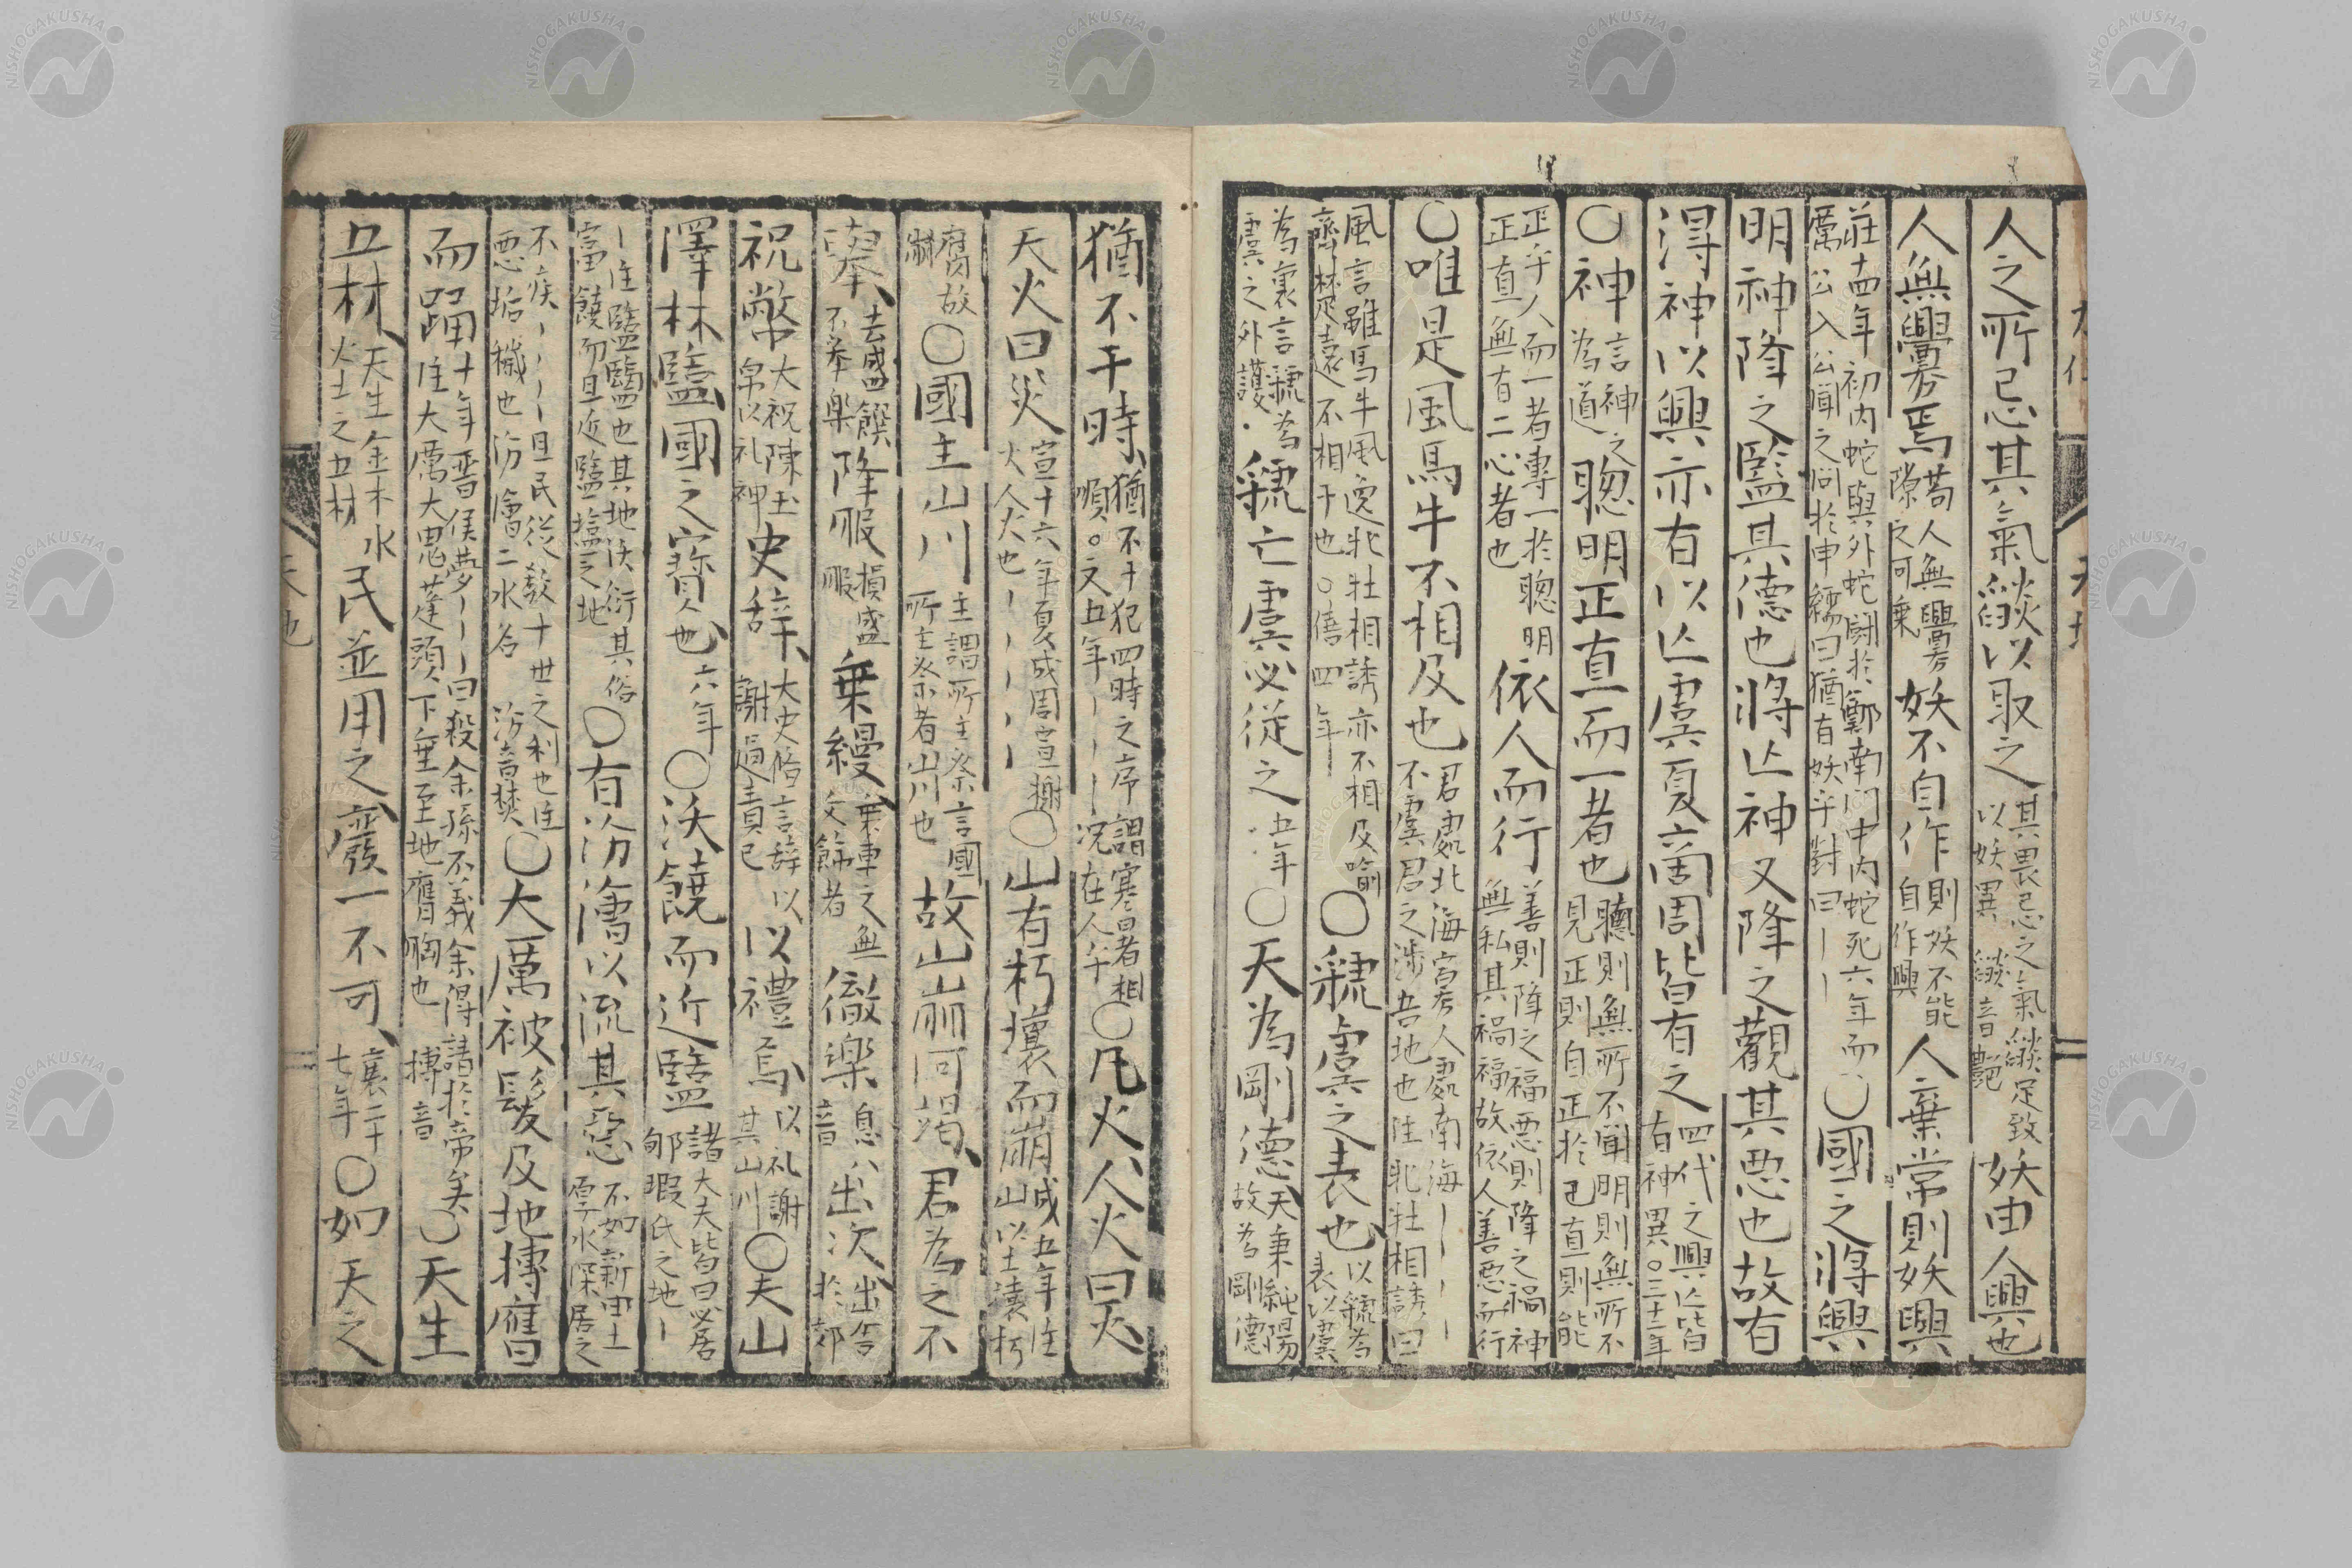 人之所忌其氣燄以取之其畏忌之氣燄足致以妖異 燄音艷妖由人興也
人無釁焉若人無釁隙之可乗妖不自作則妖不能自作興人棄常則妖興
莊十四年初内蛇與外蛇鬪於鄭南門中内蛇死六年而厲公入公聞之問於申繻曰猶有妖乎對曰〡〡○國之將興
明神降之監其德也將亡神又降之觀其悪也故有
淂神以興亦有以亡虞夏商周皆有之四代之興亡皆有神異○三十二年
○神言神之為道聦明正直而一者也聽則無所不聞明則無所不見正則自正於己直則能
正乎人而一者專一於聦明正直無有二心者也依人而行善則降之福悪則降之禍神無私其禍福故依人善悪而行
○唯是風馬牛不相及也君處北海寡人處南海〡〡〡〡不虞君之涉吾地也注牝牡相誘曰
風言雖馬牛風逸牝牡相誘亦不相及喻齊楚遠不相干也○僖四年○虢虞之表也以虢為表以虞
為裏言虢為虞之外護虢亡虞必從之五年○天為剛德天秉純陽故為剛德
猶不干時猶不干犯四時之序謂寒暑相順○文五年〡〡〡况在人乎○凡火人火曰火
天火曰災宣十六年夏成周宣榭火人火也〡〡〡〡〡○山有朽壤而崩成五年注山以土壤朽
腐故崩○國主山川主謂所主祭言國所主祭者山川也故山崩川竭君為之不
舉去盛饌不举樂降服損盛服乗縵乗車之無文飾者徹樂息八音出次出舎於郊
祝幣大祝陳玉帛以礼神史辞大史脩言辞以謝過責己以禮焉以礼謝其山川○夫山
澤林盬國之寳也六年○沃饒而近盬諸大夫皆曰必居郇瑕氏之地〡
〡注盬鹽也其地沃衍其俗富饒而且近鹽塩之地○有汾澮以流其惡不如新田土厚水深居之
不疾〡〡〡〡且民從教十世之利也注悪垢穢也汾澮二水名 汾音焚○大厲被髮及地搏膺曰
而踊十年晋侯夢〡〡〡曰殺余孫不義余得請於帝矣注大厲大鬼蓬頭下垂至地膺胸也 搏音○天生
五材天生金木水火土之五材民並用之廢一不可襄二十七年○如天之